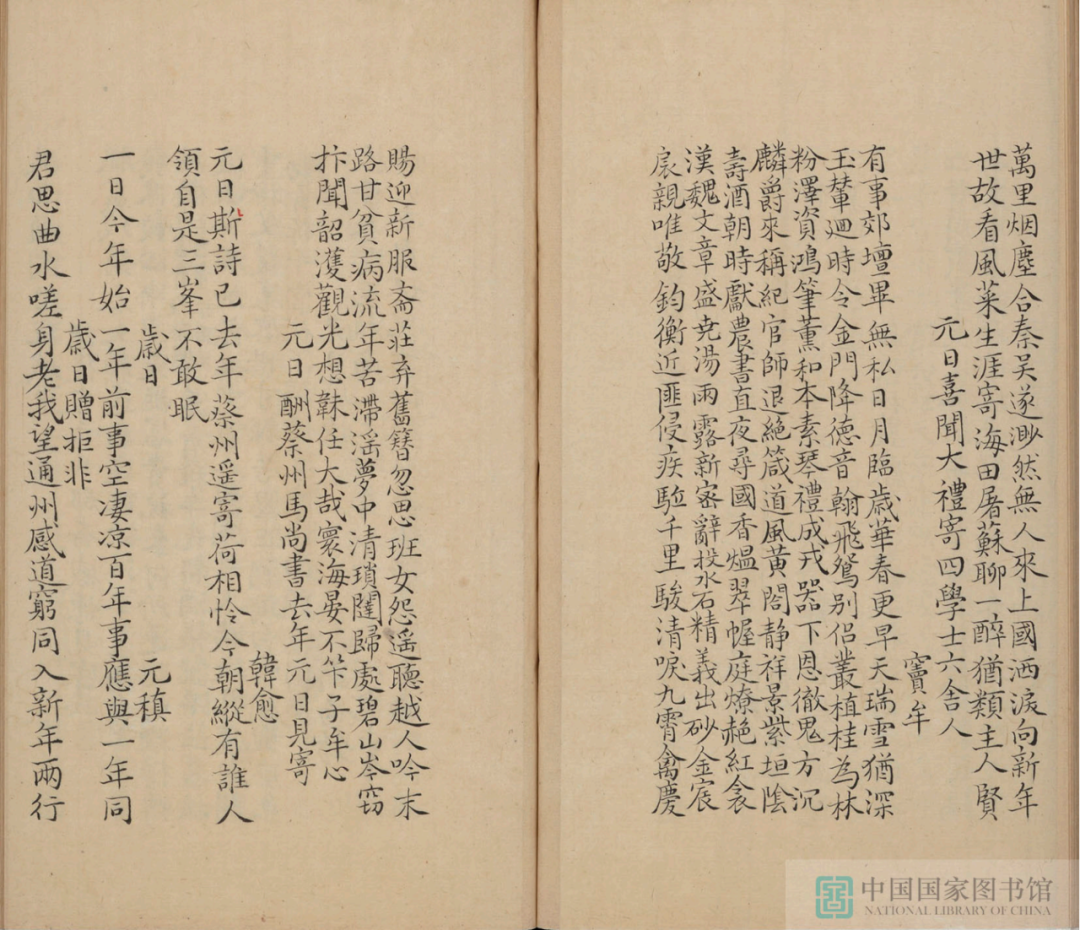 萬里烟塵合秦吴遂渺然無人來上國洒淚向新年
世故看風葉生涯寄海田屠蘇聊一醉猶類主人賢
元日喜聞大禮寄四學士六舍人
竇牟
有事郊壇畢無私日月臨歲華春更早天瑞雪猶深
玉輦廻時令金門降德音翰飛鴛别侣叢植桂為林
粉澤資鴻筆薰和本素琴禮成戎器下恩徹鬼方沉
麟爵來稱紀官師退絶箴道風黄閤静祥景紫垣陰
壽酒朝時獻農書直夜尋國香煴翠幄庭燎赩紅衾
漢魏文章盛堯湯雨露新宻辭投水石精義出砂金宸
扆親唯敬鈞衡近匪侵疾駈千里駿清唳九霄禽慶
賜迎新服齋莊弃舊簪忽思班女怨遥聽越人吟末
路甘貧病流年苦滯滛夢中清瑣闥歸處碧山岑竊
抃聞韶濩觀光想韎任大哉寰海晏不笇子牟心
元日酬蔡州馬尚書去年元日見寄
韓愈
元日斯詩已去年蔡州遥寄荷相怜今朝縱有誰人
領自是三峯不敢眠
歲日
元稹
一日今年始一年前事空凄凉百年事應與一年同
歲日贈拒非
君思曲水嗟身老我望通州感道窮同入新年兩行
中国国家图书馆
NATIONAL LIBRARY OF CHINA